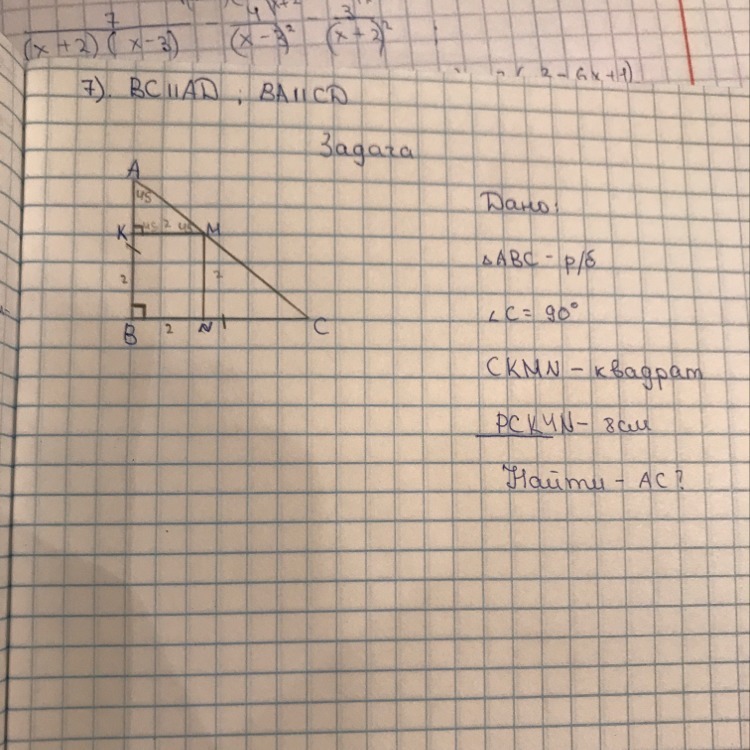 7
4
3
(x+2)(x-3) - (x-3)² - (x+2)²
7). BC||AD ; BA||CD
Задача
A
45
K 45 2 45 M
2 2
B 2 N C
Дано:
△ABC - р/б
∠C = 90°
CKMN - квадрат
PCKMN - 8 см
Найти - AC?